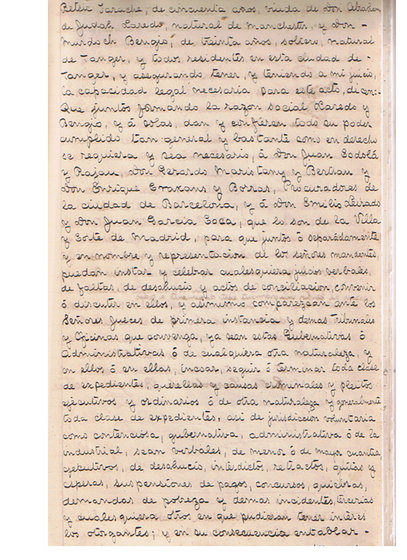 Belén Sarache, de cincuenta años, viuda de Don Abraham
de Judah Laredo, natural de Manchester, y Don
Murdoch Bengio, de treinta años, soltero, natural
de Tanger, y todos residentes en esta ciudad de
Tanger, y asegurando tener y teniendo a mi juicio,
la capacidad legal necesaria para este acto, dicen:
Que juntos formando la razon social Laredo y
Bengio, y á solas, dan y confieren todo su poder
cumplido tan general y bastante como en derecho
se requiera y sea necesario, á Don Juan
y Rajau, Don Gerardo Maristany y Bertran y
Don Enrique y Borras, Procuradores de
la ciudad de Barcelona, y á Don Emilio
y Don Juan Garcia Coca, que lo son de la Villa
y Corte de Madrid, para que juntos ó separadamente
y en nombre y representacion de los señores mandantes,
puedan instar y celebrar cualesquiera juicios verbales,
de faltas, de desahucio y actos de conciliacion, convenir
ó disentir en ellos, y asimismo comparezcan ante los
Señores Jueces de primera instancia y demas Tribunales
y Oficinas que convenga, ya sean estas Gubernativas ó
Administrativas ó de cualquiera otra naturaleza, y
en ellos ó en ellas, incoar, seguir ó terminar toda clase
de expedientes, querellas y causas criminales y pleitos
ejecutivos, y ordinarios ó de otra naturaleza y generalmente
toda clase de expedientes, asi de jurisdiccion voluntaria
como contenciosa, gubernativa, administrativa ó de la
industrial, sean verbales, de menor ó de mayor cuantia
ejecutivos, de desahucio, interdicto, retractos, quitas y
esperas, suspensiones de pagos, concursos, quiebras,
demandas de pobreza y demas incidentes, tercerias
y cualesquiera otros en que pudieran tener interes
los otorgantes; y en su consecuencia entablar-